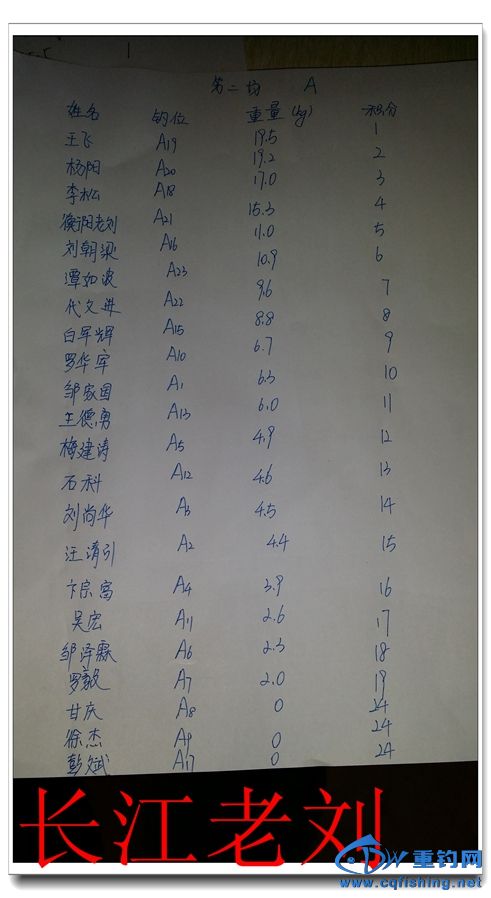 第二场 A
姓名 钓位 重量(kg) 积分
王飞 A19 19.5 1
杨阳 A20 19.2 2
李松 A18 17.0 3
衡阳老刘 A21 15.3 4
刘朝梁 A16 11.0 5
谭如波 A23 10.9 6
代文进 A22 9.6 7
白军辉 A15 8.8 8
罗华军 A10 6.7 9
邹家国 A1 6.3 10
王德勇 A13 6.0 11
梅建涛 A5 4.9 12
石科 A12 4.6 13
刘尚华 A3 4.5 14
汪清引 A2 4.4 15
卞宗富 A4 3.9 16
吴宏 A11 2.6 17
邹泽霖 A6 2.3 18
罗毅 A7 2.0 19
甘庆 A8 0 24
徐杰 A9 0 24
彭斌 A17 0 24
长江老刘
重钓网
www.cqfishing.net